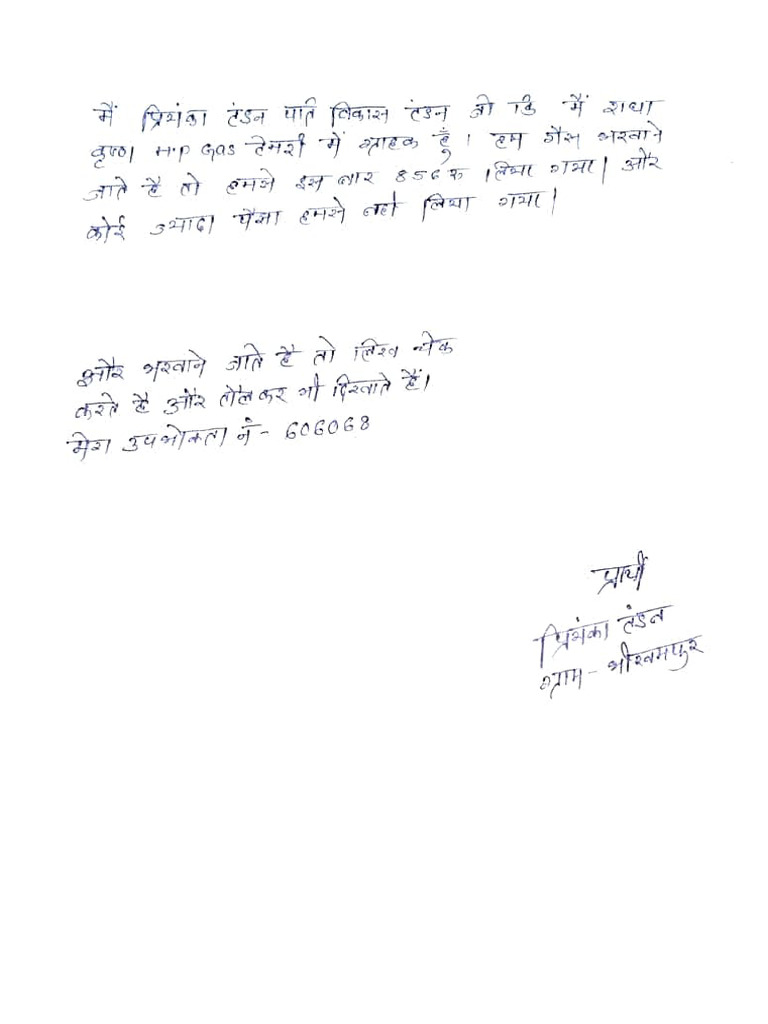 मैं प्रियंका टंडन पति विकास टंडन जो कि मैं राधा
कृष्णा H.P Gas टेमरी में ग्राहक हूँ। हम गैस भरवाने
जाते है तो हमसे इस बार 856 रु लिया गया। और
कोई ज्यादा पैसा हमसे नही लिया गया।
और भरवाने जाते है तो लिख चेक
करते है और तौलकर भी दिखाते हैं।
मेरा उपभोक्ता नं - 606068
प्रार्थी
प्रियंका टंडन
ग्राम - भीखमपुर